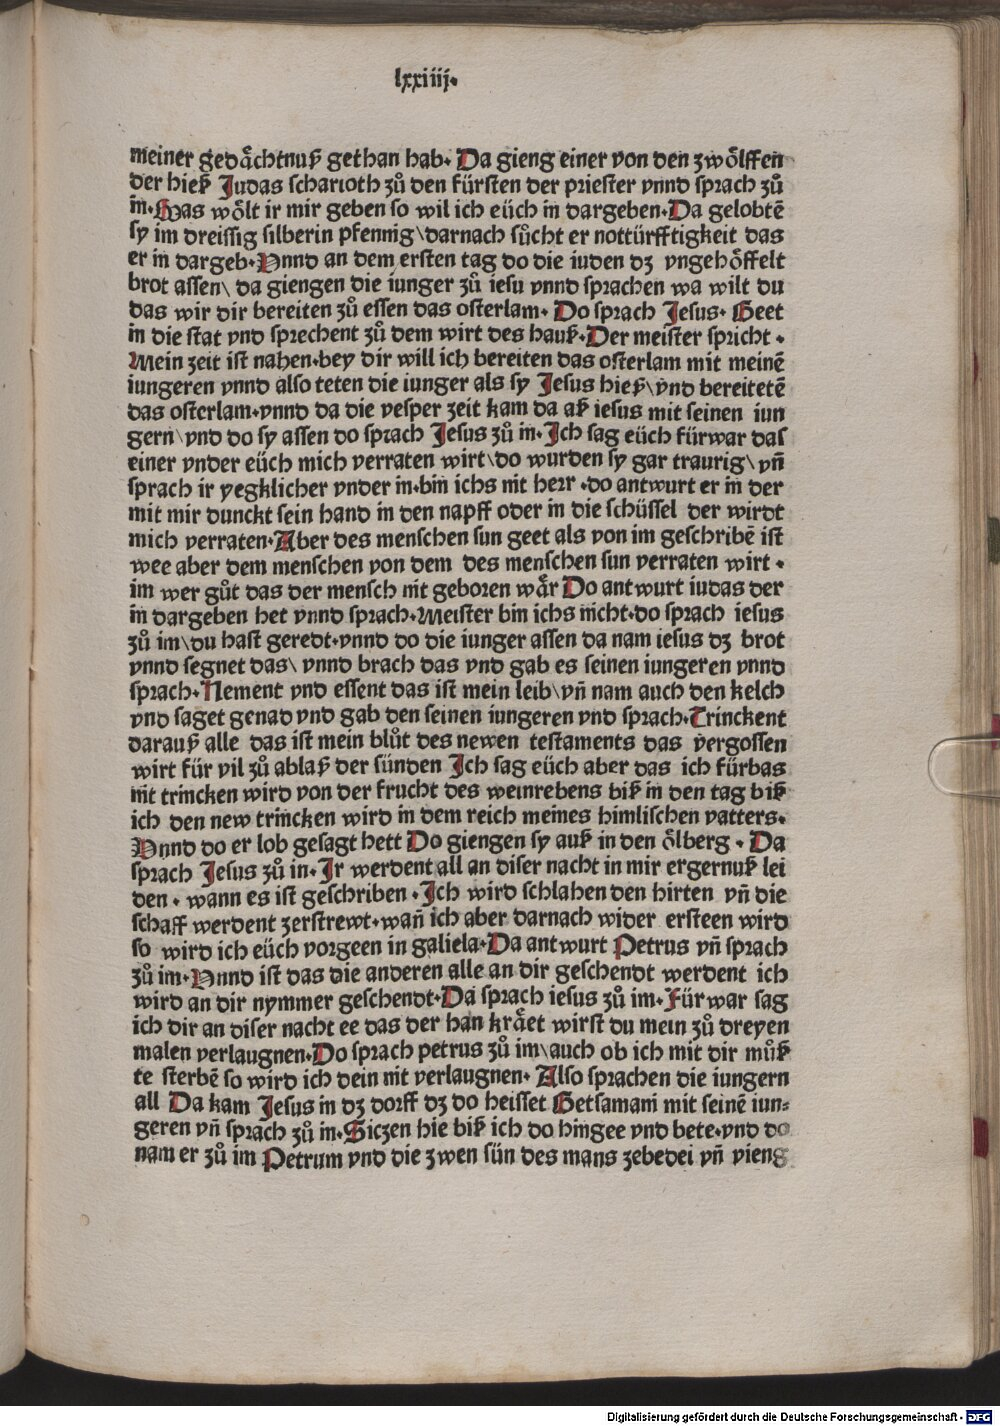 lxxiiij.
meiner gedåchtnuß gethan hab. Da gieng einer von den zwölffen
der hieß Judas scharioth zů den fürsten der priester vnnd sprach zů
in. Was wölt ir mir geben so wil ich eüch in dargeben. Da gelobtē
sy im dreissig silberin pfennig\ darnach sůcht er nottürfftigkeit das
er in dargeb. Vnnd an dem ersten tag do die iuden dz vngehöffelt
brot assen\ da giengen die iunger zů iesu vnnd sprachen wa wilt du
das wir dir bereiten zů essen das osterlam. Do sprach Jesus. Geet
in die stat vnd sprechent zů dem wirt des hauß. Der meister spricht.
Mein zeit ist nahen. bey dir will ich bereiten das osterlam mit meinē
iungeren vnnd also teten die iunger als sy Jesus hieß\ vnd bereitetē
das osterlam. vnnd da die vesper zeit kam da aß iesus mit seinen iun
gern\ vnd do sy assen do sprach Jesus zů in. Ich sag eüch fürwar das
einer vnder eüch mich verraten wirt\ do wurden sy gar traurig\ vn̄
sprach ir yegklicher vnder in. bin ichs nit herr. do antwurt er in der
mit mir dunckt sein hand in den napff oder in die schüssel der wirdt
mich verraten. Aber des menschen sun geet als von im geschribē ist
wee aber dem menschen von dem des menschen sun verraten wirt.
im wer gůt das der mensch nit geboren wår Do antwurt iudas der
in dargeben het vnnd sprach. Meister bin ichs nicht. do sprach iesus
zů im\ du hast geredt. vnnd do die iunger assen da nam iesus dz brot
vnnd segnet das\ vnnd brach das vnd gab es seinen iungeren vnnd
sprach. Nement vnd essent das ist mein leib\ vn̄ nam auch den kelch
vnd saget genad vnd gab den seinen iungeren vnd sprach. Trinckent
darauß alle das ist mein blůt des newen testaments das vergossen
wirt für vil zů ablaß der sünden Ich sag eüch aber das ich fürbas
nit trincken wird von der frucht des weinrebens biß in den tag biß
ich den new trincken wird in dem reich meines himlischen vatters.
Vnnd do er lob gesagt hett Do giengen sy auß in den ölberg. Da
sprach Jesus zů in. Ir werdent all an diser nacht in mir ergernuß lei
den. wann es ist geschriben. Ich wird schlahen den hirten vn̄ die
schaff werdent zerstrewt. wan̄ ich aber darnach wider ersteen wird
so wird ich eüch vorgeen in galiela. Da antwurt Petrus vn̄ sprach
zů im. Vnnd ist das die anderen alle an dir geschendt werdent ich
wird an dir nymmer geschendt. Da sprach iesus zů im. Fürwar sag
ich dir an diser nacht ee das der han krået wirst du mein zů dreyen
malen verlaugnen. Do sprach petrus zů im\ auch ob ich mit dir můß
te sterbē so wird ich dein nit verlaugnen. Also sprachen die iungern
all Da kam Jesus in dz dorff dz do heisset Getsamani mit seinē iun=
geren vn̄ sprach zů in. Siczen hie biß ich do hingee vnd bete. vnd do
nam er zů im Petrum vnd die zwen sün des mans zebedei vn̄ vieng
Digitalisierung gefördert durch die Deutsche Forschungsgemeinschaft - DFG